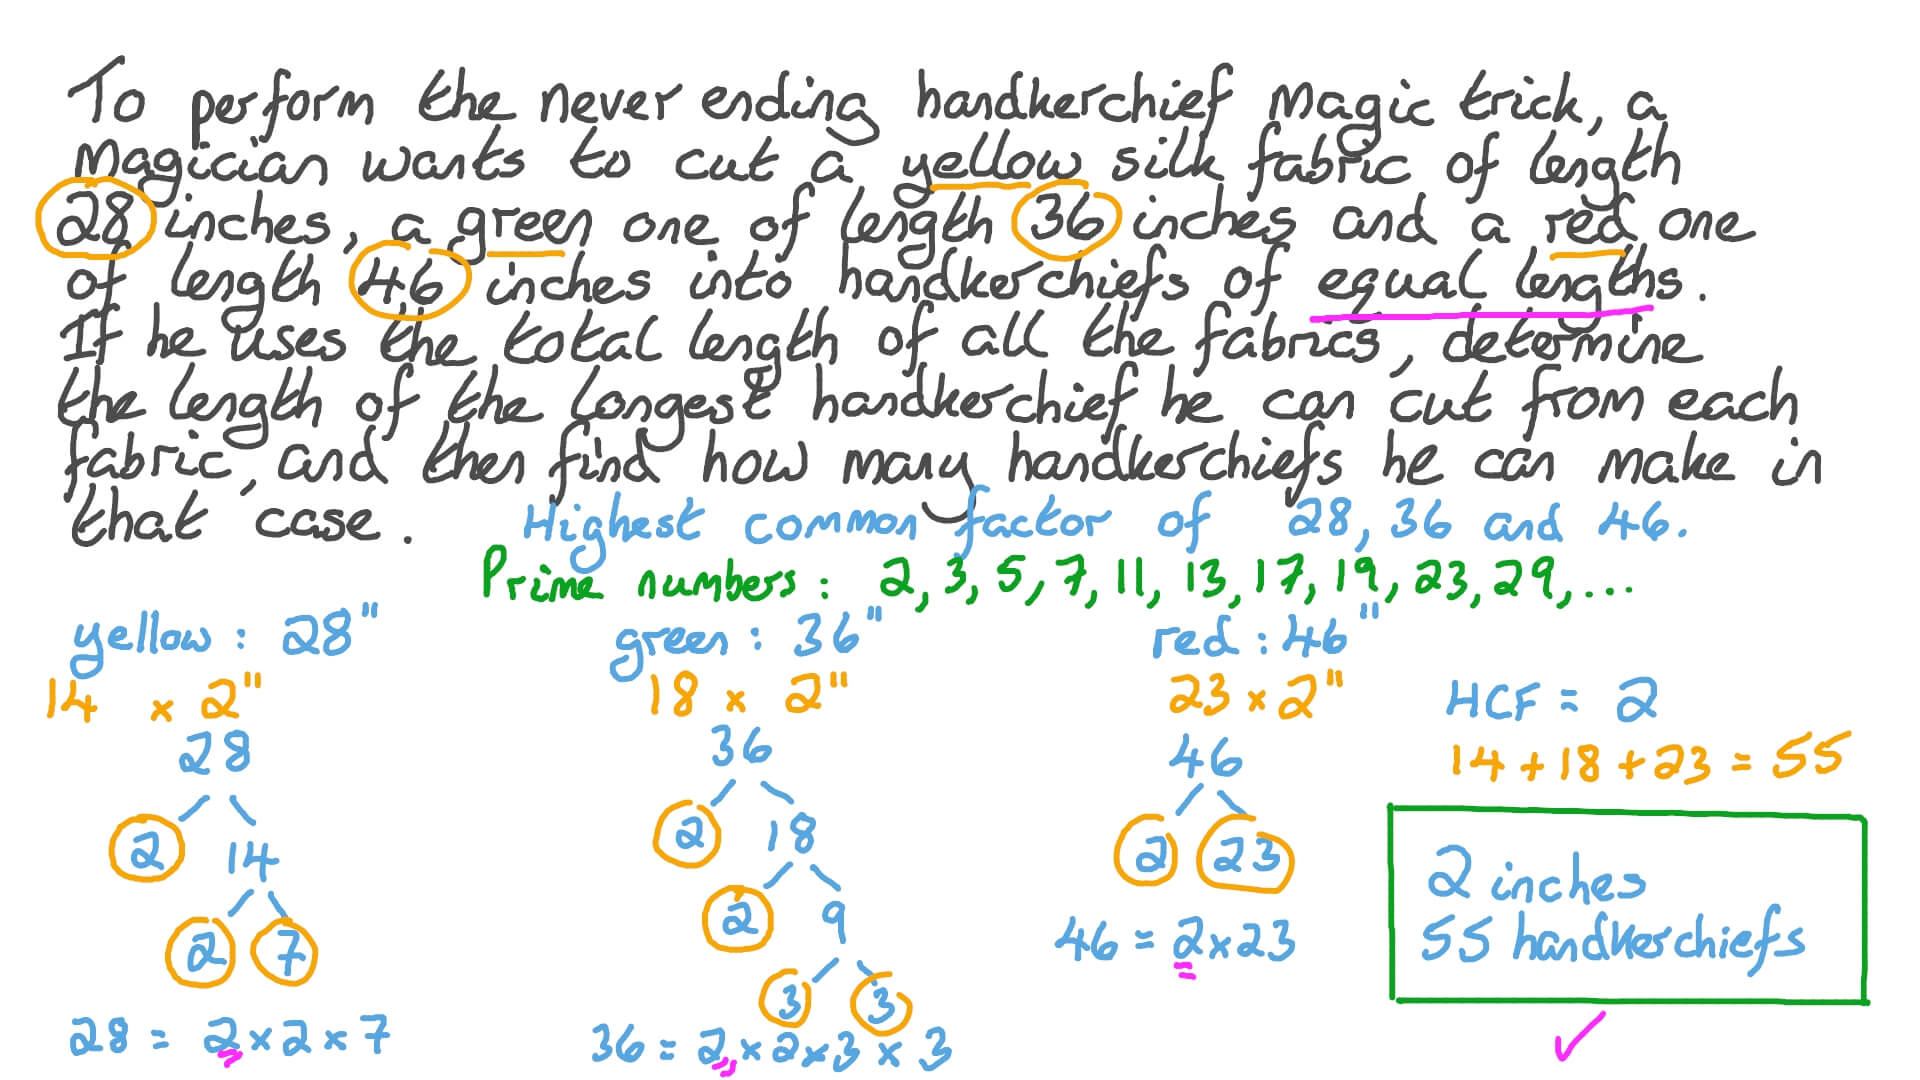 To perform the never ending handkerchief magic trick, a
magician wants to cut a yellow silk fabric of length
28 inches, a green one of length 36 inches and a red one
of length 46 inches into handkerchiefs of equal lengths.
If he uses the total length of all the fabrics, determine
the length of the longest handkerchief he can cut from each
fabric, and then find how many handkerchiefs he can make in
that case.
Highest common factor of 28, 36 and 46.
Prime numbers: 2, 3, 5, 7, 11, 13, 17, 19, 23, 29, ...
yellow : 28"
14 × 2"
28
2 14
2 7
28 = 2 × 2 × 7
green : 36"
18 × 2"
36
2 18
2 9
3 3
36 = 2 × 2 × 3 × 3
red : 46"
23 × 2"
46
2 23
46 = 2 × 23
HCF = 2
14 + 18 + 23 = 55
2 inches
55 handkerchiefs